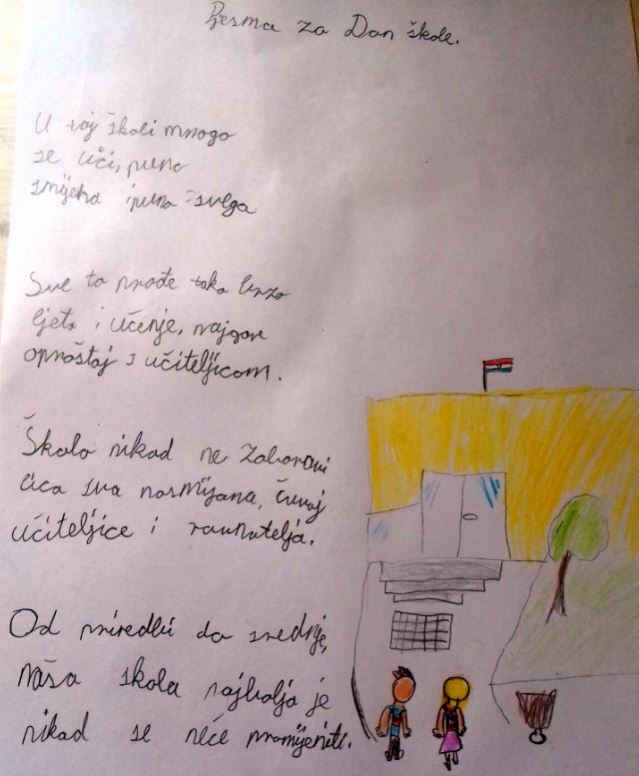 Pjesma za Dan škole.
U toj školi mnogo
se uči, puno
smijeha i puno svega
Sve to prođe tako brzo
ljeto i učenje, najgore
oproštaj s učiteljicom.
Školo nikad ne zaboravi
lica sva nasmijana, čuvaj
učiteljice i ravnatelja.
Od priredbi do srednje,
naša škola najbolja je
nikad se neće promijeniti.